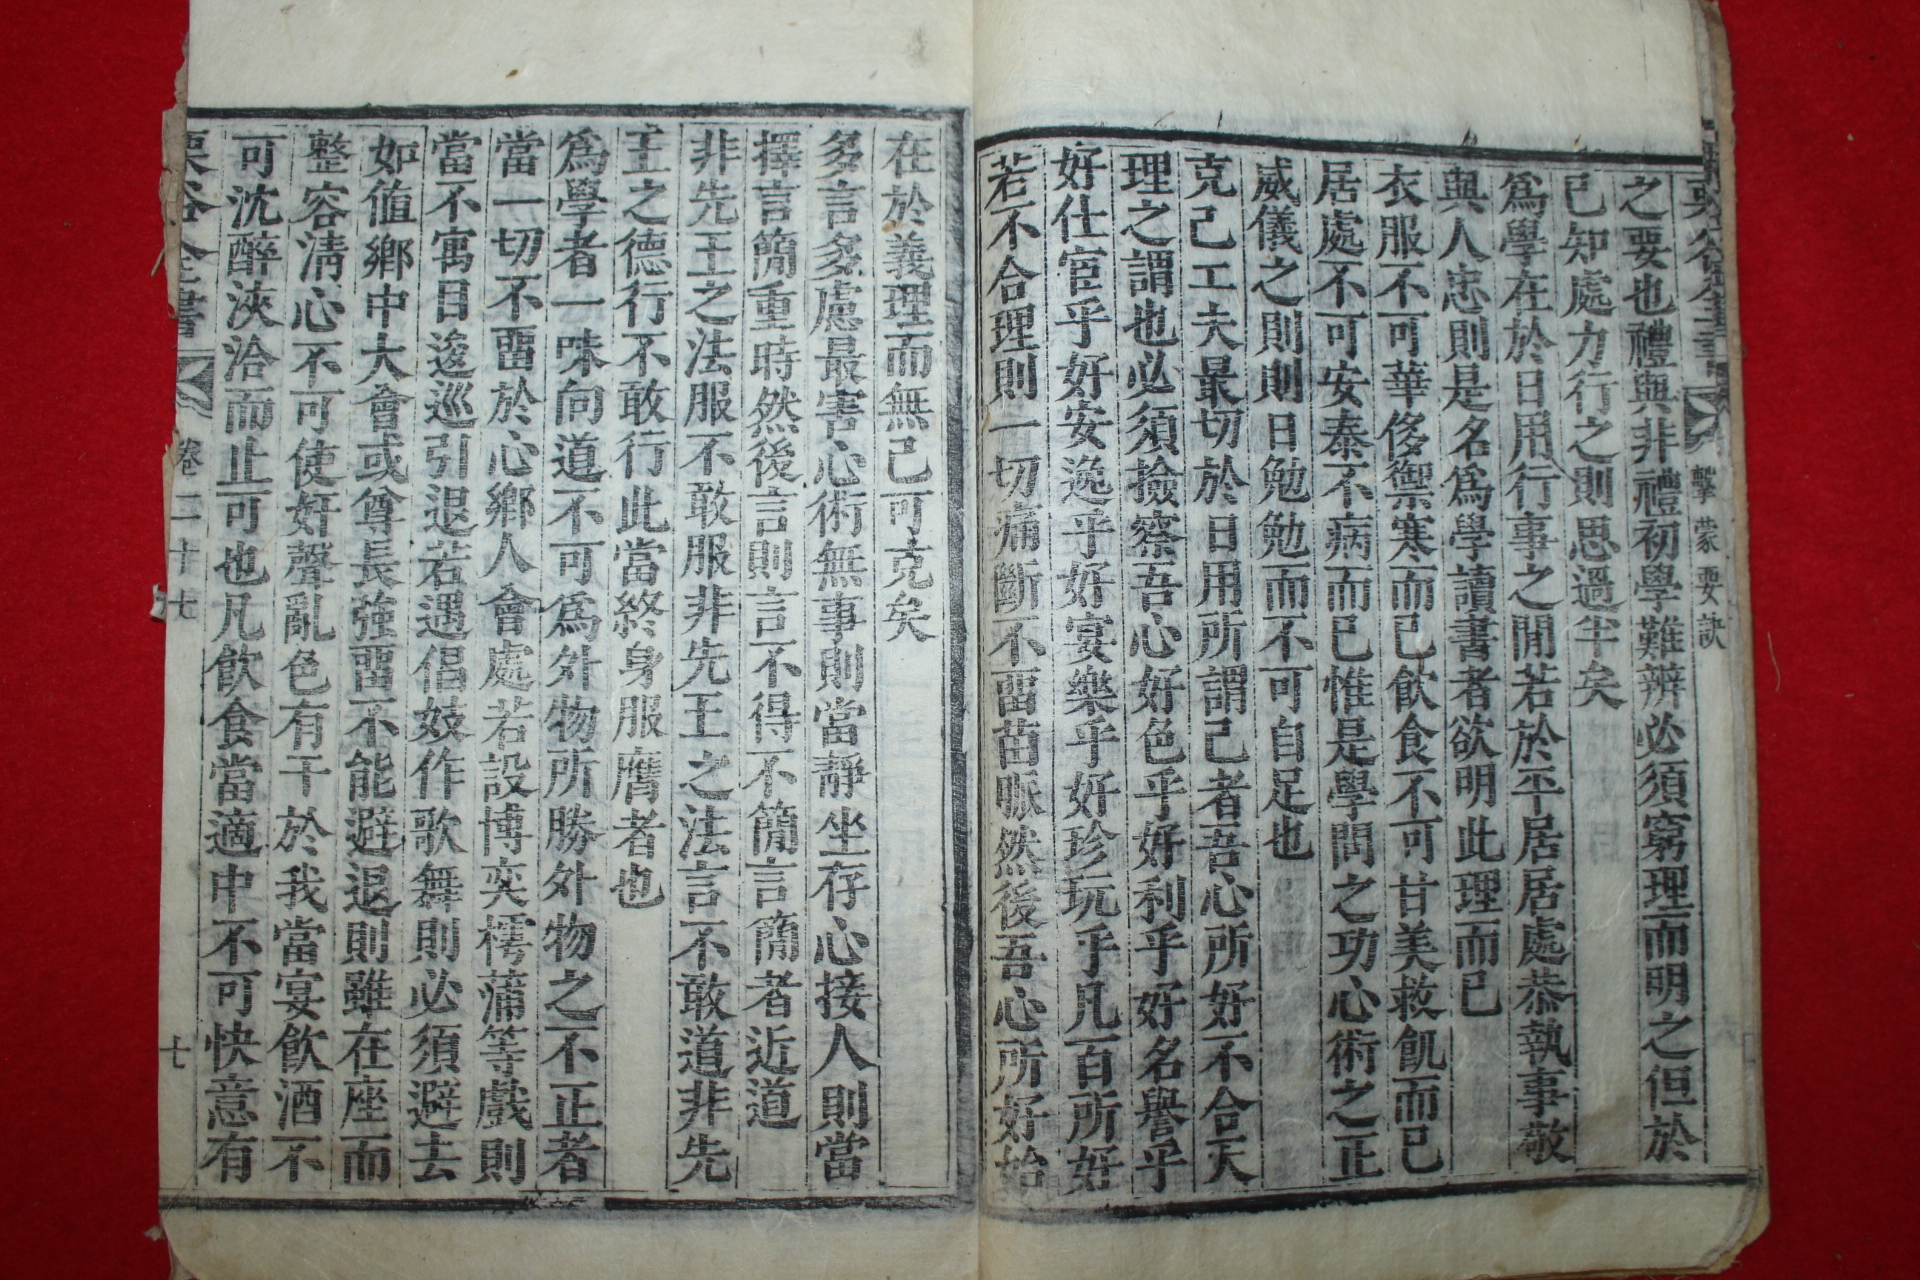 栗谷全書 擊蒙要訣
之要也禮與非禮初學難辨必須窮理而明之但於
已知處力行之則思過半矣
爲學在於日用行事之閒若於平居居處恭執事敬
與人忠則是名爲學讀書者欲明此理而已
衣服不可華侈禦寒而已飮食不可甘美救飢而已
居處不可安泰不病而已惟是學問之功心術之正
威儀之則則日勉勉而不可自足也
克己工夫最切於日用所謂己者吾心所好不合天
理之謂也必須撿察吾心好色乎好利乎好名譽乎
好仕宦乎好安逸乎好宴樂乎好珍玩乎凡百所好
若不合理則一切痛斷不畱苗脈然後吾心所好始
在於義理而無己可克矣
多言多慮最害心術無事則當靜坐存心接人則當
擇言簡重時然後言則言不得不簡言簡者近道
非先王之法服不敢服非先王之法言不敢道非先
王之德行不敢行此當終身服膺者也
爲學者一味向道不可爲外物所勝外物之不正者
當一切不畱於心鄕人會處若設博奕樗蒲等戲則
當不寓目逡巡引退若遇倡妓作歌舞則必須避去
如値鄕中大會或尊長强畱不能避退則雖在座而
整容淸心不可使奸聲亂色有干於我當宴飮酒不
可沈醉浹洽而止可也凡飮食當適中不可快意有
栗谷全書 卷二十七 七